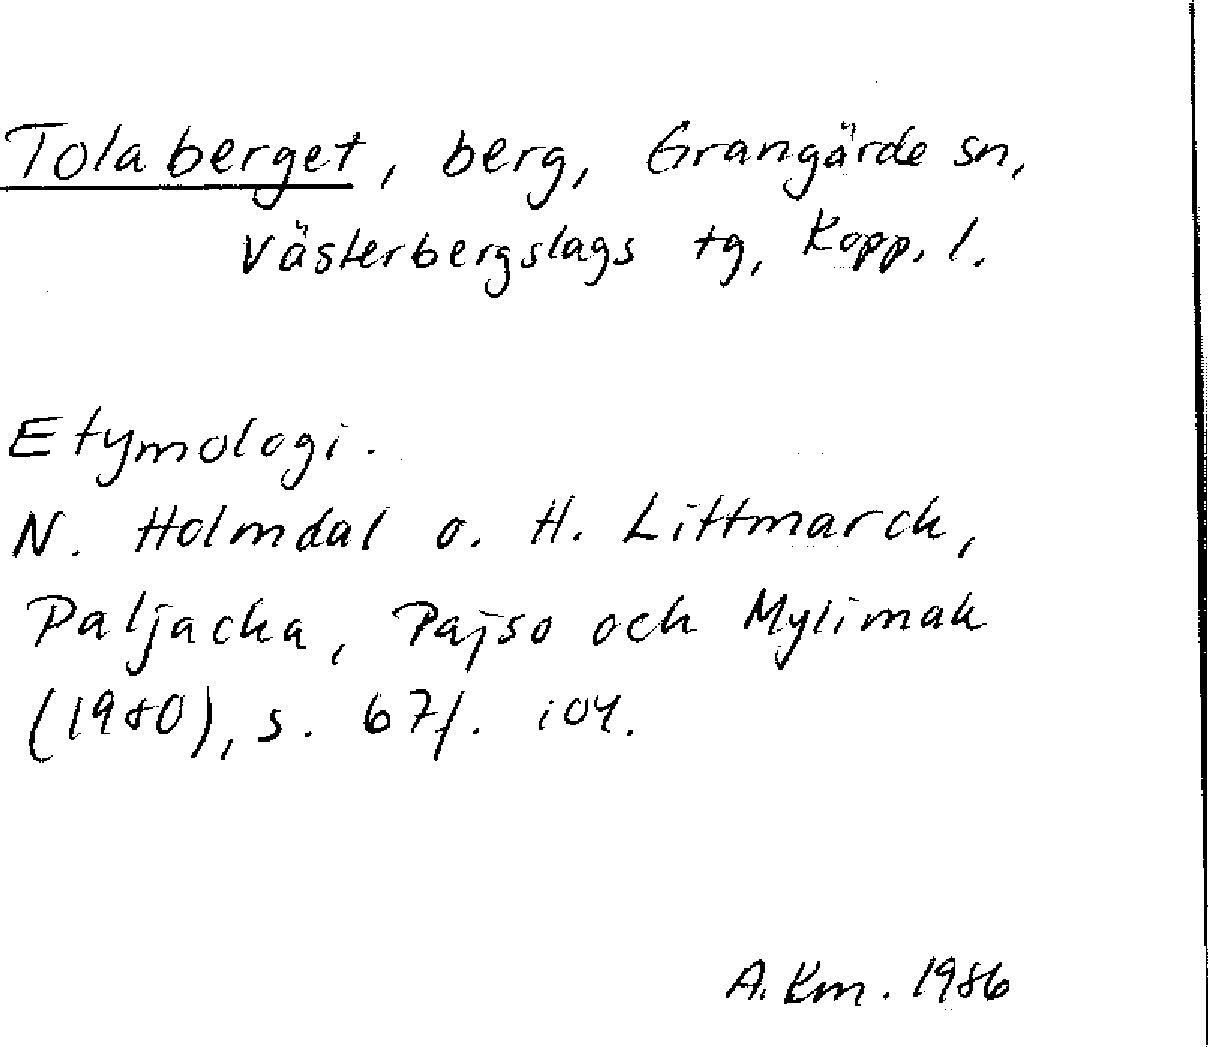 Tolaberget, berg, Grangärde sn,
Västerbergslags tg, Kopp. l.
Etymologi.
N. Holmdal o. H. Littmarck,
Paljacka, Pajso och Mylimak
(1980), s. 67f. 104.
A. Km. 1986